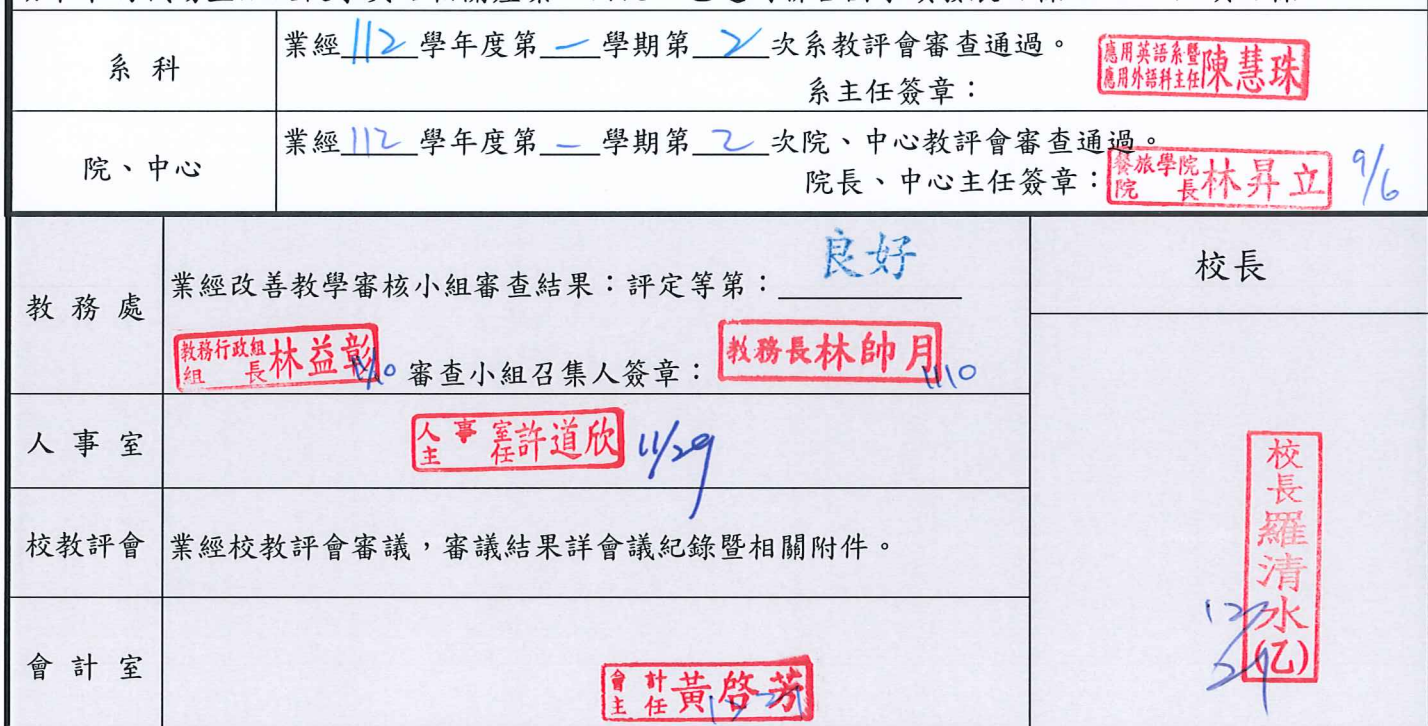 系科
業經112學年度第一學期第2次系教評會審查通過。
系主任簽章：
應用英語系暨應用外語科主任陳慧珠
院、中心
業經112學年度第一學期第2次院、中心教評會審查通過。
院長、中心主任簽章：
餐旅學院院長林昇立 9/6
教務處
業經改善教學審核小組審查結果：評定等第：良好
教務行政組組長林益彰
審查小組召集人簽章：
教務長林帥月 1110
人事室
人事室主任許道欣 11/29
校教評會
業經校教評會審議，審議結果詳會議紀錄暨相關附件。
會計室
會計主任黃啓芳
校長
校長羅清水(乙)